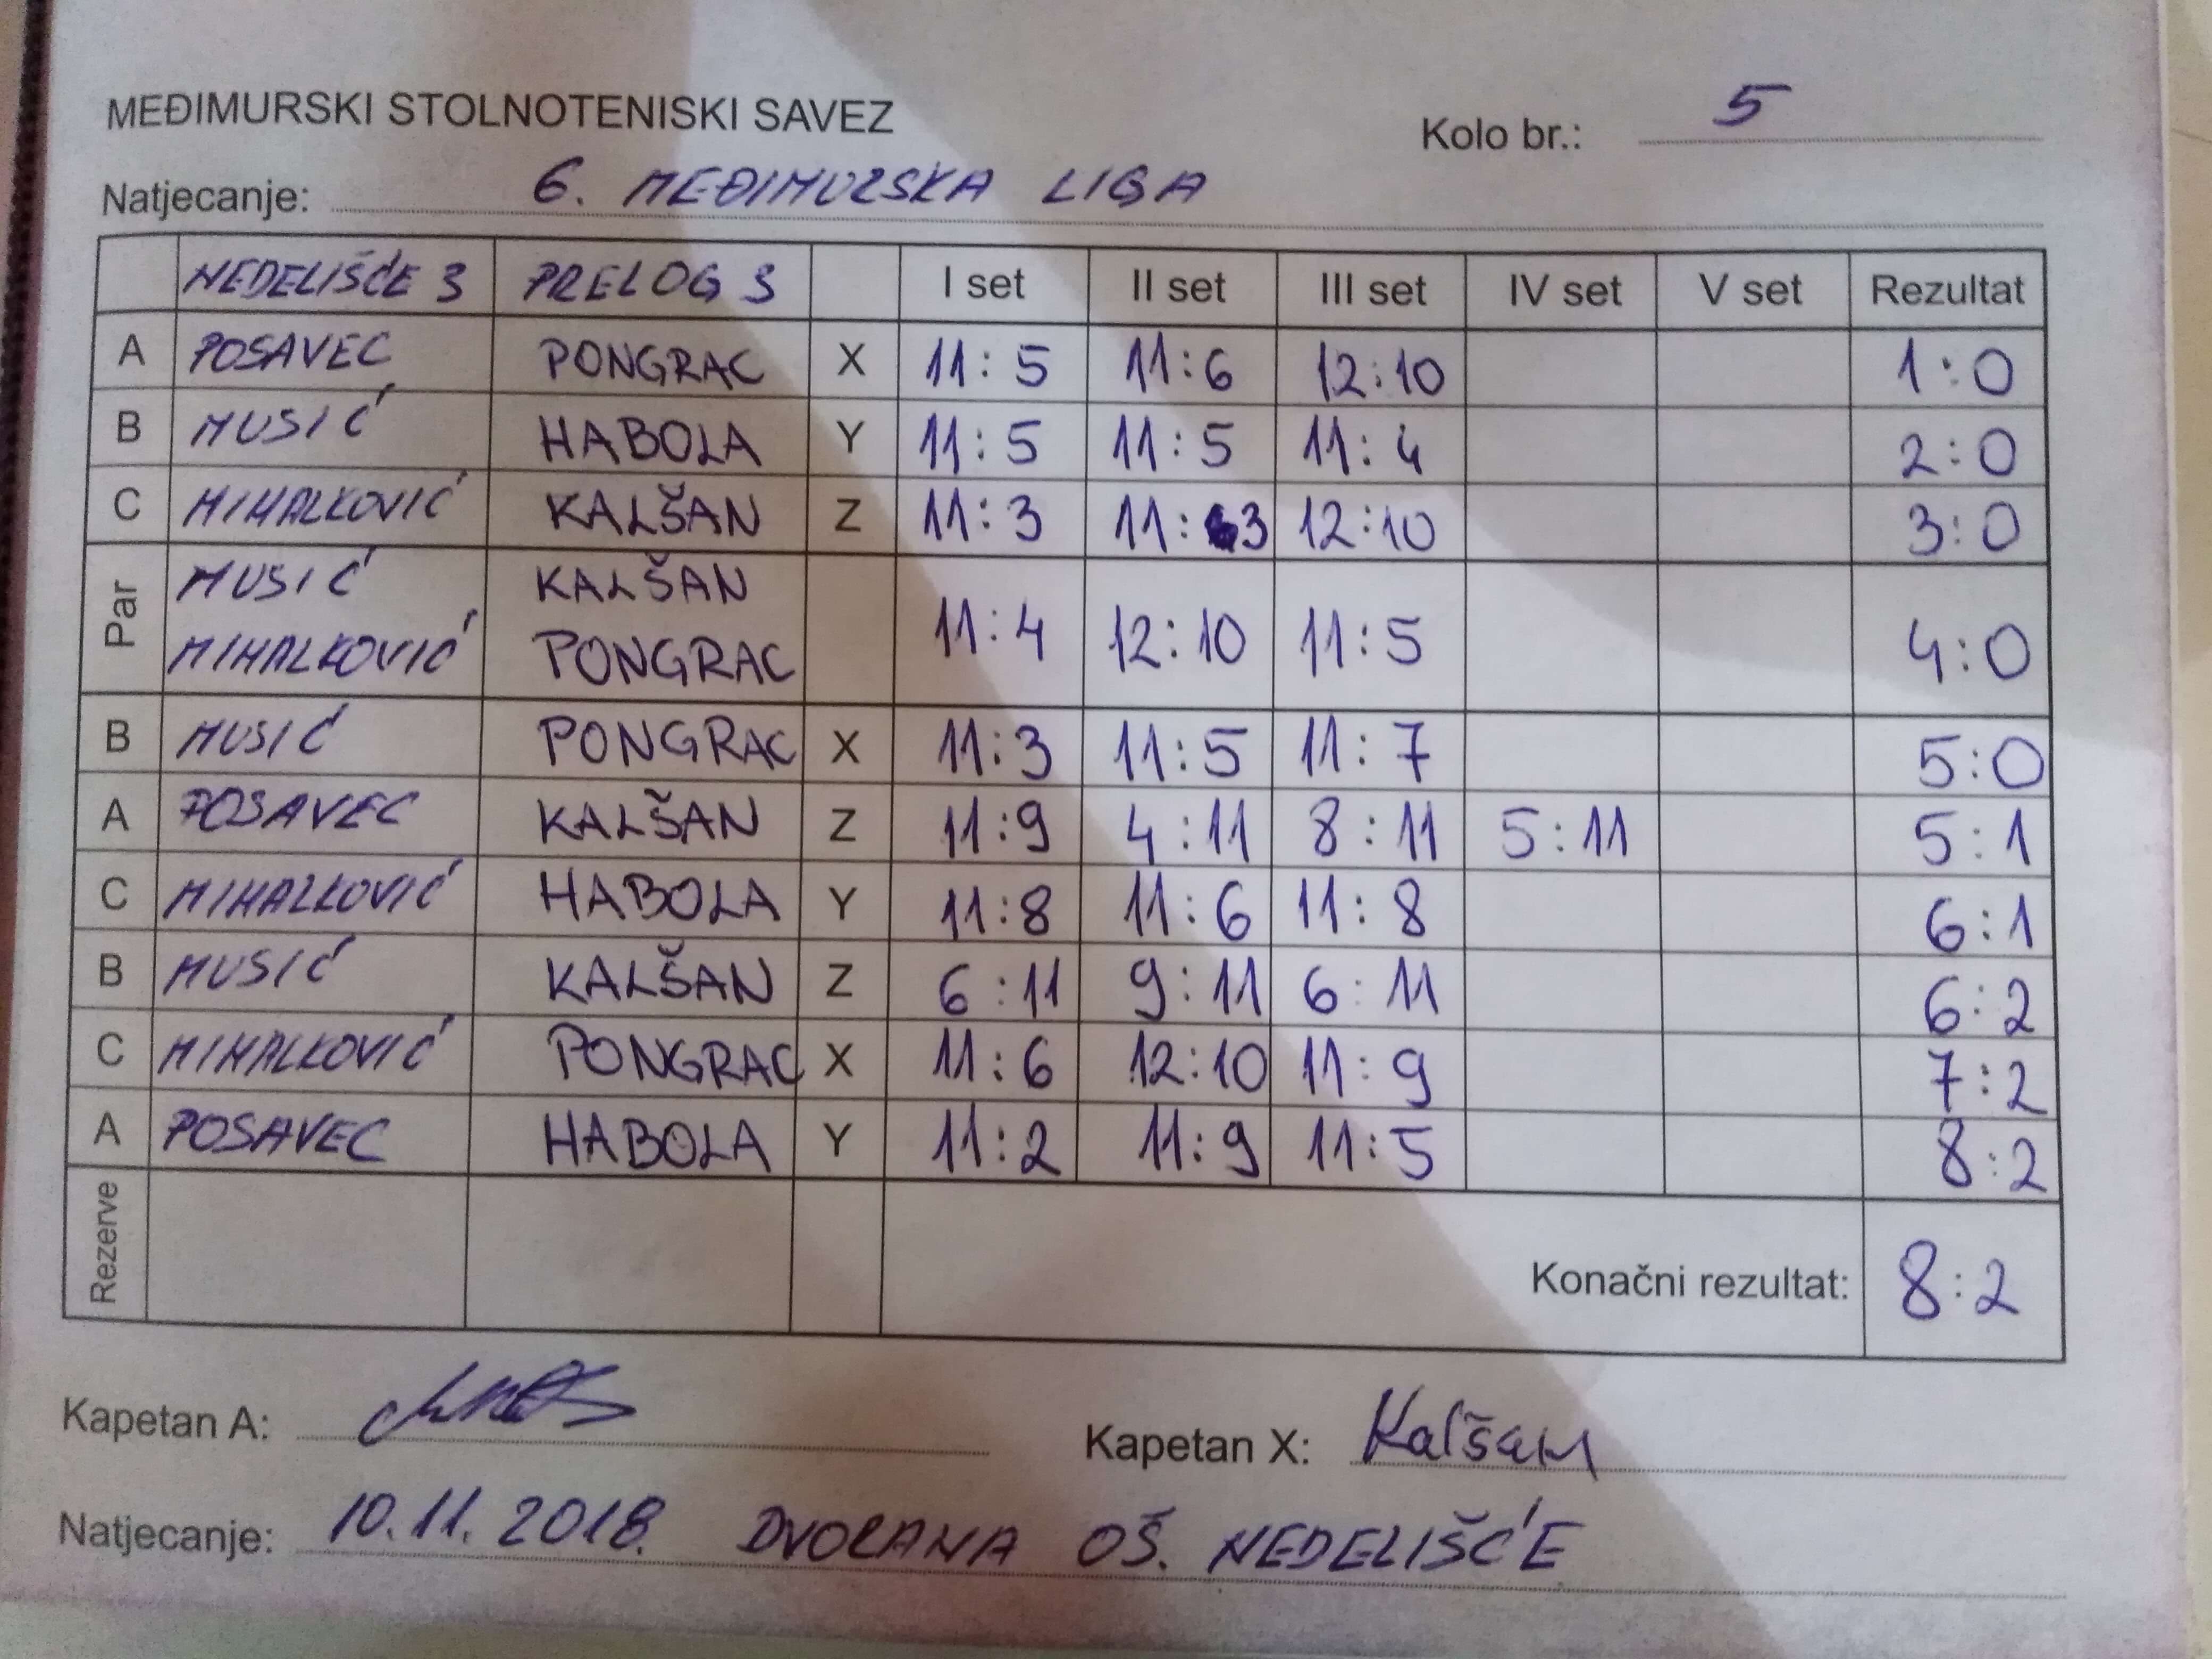 MEĐIMURSKI STOLNOTENISKI SAVEZ Kolo br.: 5
Natjecanje: 6. MEĐIMURSKA LIGA
NEDELIŠĆE 3 PRELOG 3 I set II set III set IV set V set Rezultat
A POSAVEC PONGRAC X 11:5 11:6 12:10 1:0
B MUSIĆ HABOLA Y 11:5 11:5 11:4 2:0
C MIHALKOVIĆ KALŠAN Z 11:3 11:3 12:10 3:0
Par MUSIĆ KALŠAN 11:4 12:10 11:5 4:0
MIHALKOVIĆ PONGRAC
B MUSIĆ PONGRAC X 11:3 11:5 11:7 5:0
A POSAVEC KALŠAN Z 11:9 4:11 8:11 5:11 5:1
C MIHALKOVIĆ HABOLA Y 11:8 11:6 11:8 6:1
B MUSIĆ KALŠAN Z 6:11 9:11 6:11 6:2
C MIHALKOVIĆ PONGRAC X 11:6 12:10 11:9 7:2
A POSAVEC HABOLA Y 11:2 11:9 11:5 8:2
Rezerve Konačni rezultat: 8:2
Kapetan A: Kapetan X: Kalšan
Natjecanje: 10.11.2018. DVORANA OŠ. NEDELIŠĆE